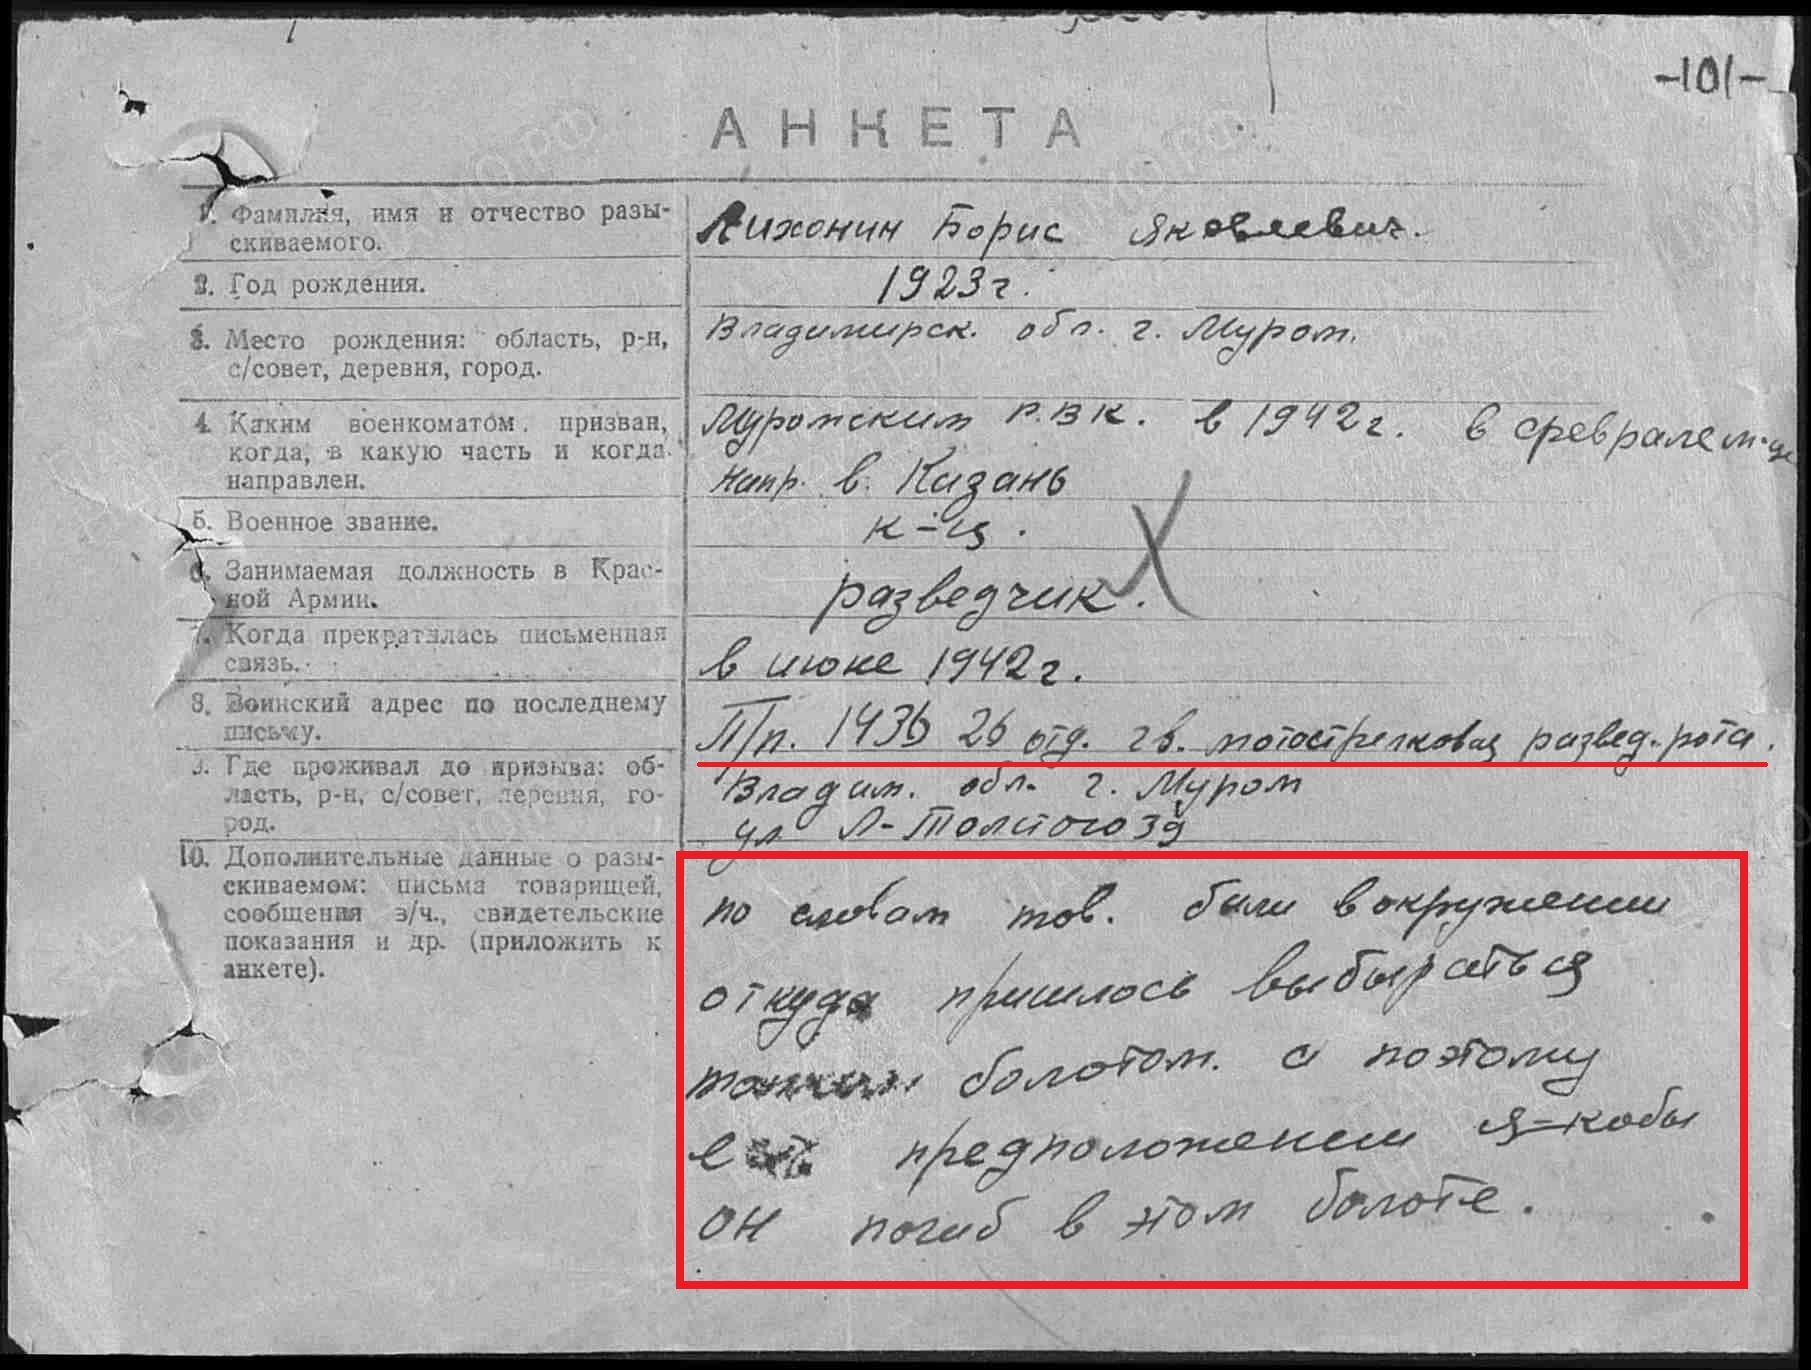 -101-
АНКЕТА
1. Фамилия, имя и отчество разы-
скиваемого.
Лихонин Борис Яковлевич.
2. Год рождения.
1923 г.
3. Место рождения: область, р-н,
с/совет, деревня, город.
Владимирск. обл. г. Муром.
4. Каким военкоматом призван,
когда, в какую часть и когда
направлен.
Муромским Р.В.К. в 1942 г. в феврале м-це
напр. в. Казань
5. Военное звание.
к-ц.
6. Занимаемая должность в Крас-
ной Армии.
разведчик.
7. Когда прекратилась письменная
связь.
в июне 1942 г.
8. Воинский адрес по последнему
письму.
П/п. 1436 26 отд. гв. мотострелковая развед. рота.
9. Где проживал до призыва: об-
ласть, р-н, с/совет, деревня, го-
род.
Владим. обл. г. Муром
ул Л-Толстого 39
10. Дополнительные данные о разы-
скиваемом: письма товарищей,
сообщения з/ч., свидетельские
показания и др. (приложить к
анкете).
по словам тов. были в окружении
откуда пришлось выбыраться
болотом. а поэтому
предположении я-кобы
он погиб в этом болоте.